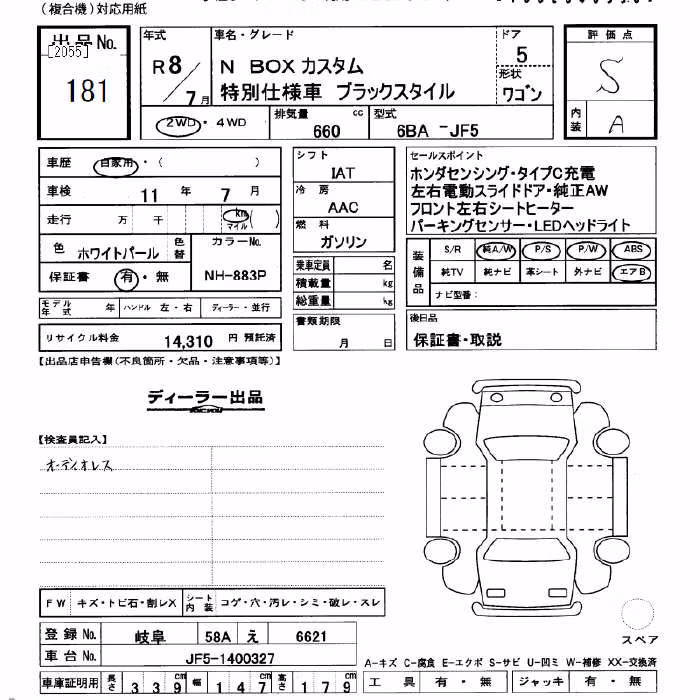 （複合機）対応用紙
出品No.
[2055]
181
年式
R8/7月
車名・グレード
N BOX カスタム
特別仕様車 ブラックスタイル
ドア
5
形状
ワゴン
2WD・4WD
排気量
660 cc
型式
6BA -JF5
評価点
S
内装
A
車歴 自家用・（ ）
車検 11 年 7 月
走行 万 千 km マイル( )
色 ホワイトパール 色替
カラーNo.
NH-883P
保証書 有・無
モデル年式 年 ハンドル 左・右 ディーラー・並行
リサイクル料金 14,310 円 預託済
シフト
IAT
冷房
AAC
燃料
ガソリン
乗車定員 名
積載量 kg
総重量 kg
書類期限
月 日
セールスポイント
ホンダセンシング・タイプC充電
左右電動スライドドア・純正AW
フロント左右シートヒーター
パーキングセンサー・LEDヘッドライト
装備品
S/R 純A/W P/S P/W ABS
純TV 純ナビ 革シート 外ナビ エアB
ナビ型番：
後日品
保証書・取説
【出品店申告欄(不良箇所・欠品・注意事項等)】
ディーラー出品
【検査員記入】
オーディオレス
FW キズ・トビ石・割レX シート内装 コゲ・穴・汚レ・シミ・破レ・スレ
登録No. 岐阜 58A え 6621
車台No. JF5-1400327
車庫証明用 長さ 339cm 幅 147cm 高さ 179
スペア
A-キズ C-腐食 E-エクボ S-サビ U-凹ミ W-補修 XX-交換済
工具 有・無 ジャッキ 有・無